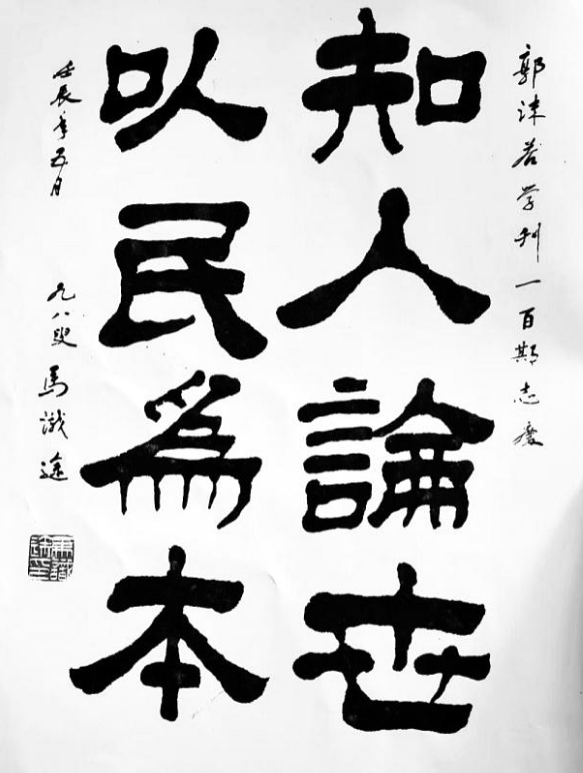 郭沫若学刊一百期志庆
知人論世
以民為本
壬辰年五月
九八叟馬識途